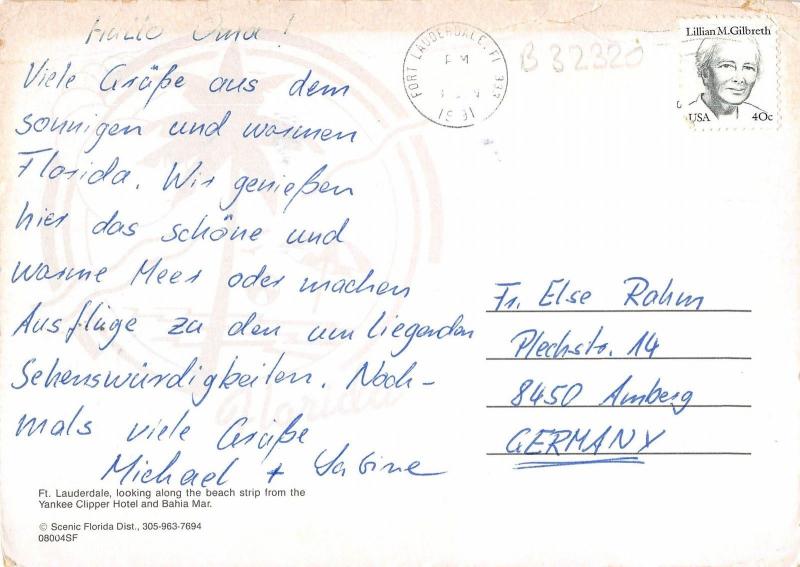 Hallo Oma!
Viele Grüße aus dem
sonnigen und warmen
Florida. Wir genießen
hier das schöne und
warme Meer oder machen
Ausflüge zu den umliegenden
Sehenswürdigkeiten. Noch-
mals viele Grüße
Michael + Sabine
Ft. Lauderdale, looking along the beach strip from the
Yankee Clipper Hotel and Bahia Mar.
© Scenic Florida Dist., 305-963-7694
08004SF
Florida
FORT LAUDERDALE, FL 333
PM
1991
B 32320
Lillian M. Gilbreth
USA 40c
Fr. Else Rahm
Plechstr. 14
8450 Amberg
GERMANY